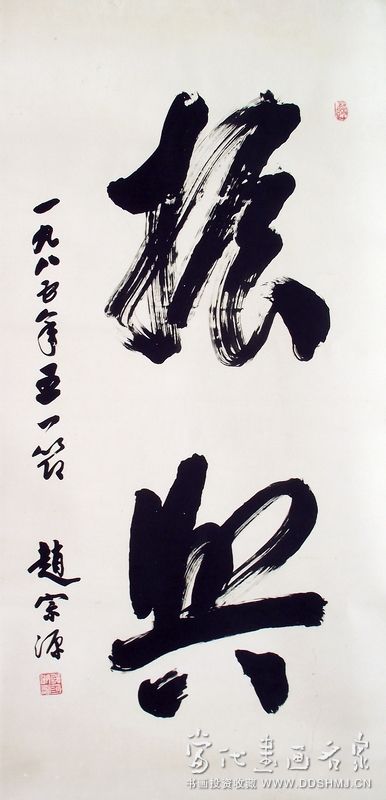 振兴
一九八五年五一节
趙宗源
当代書画名家
书画投资收藏 WWW.DDSHMJ.CN